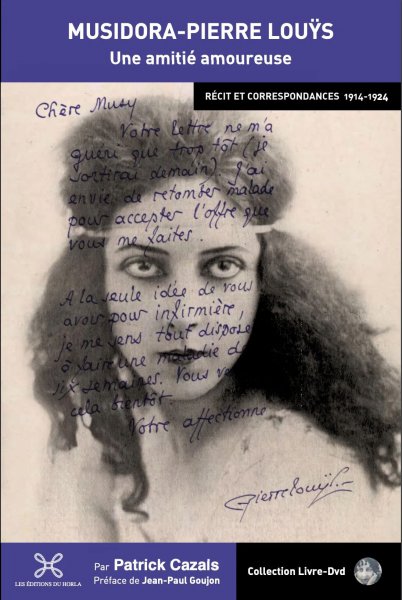 MUSIDORA-PIERRE LOUŸS
Une amitié amoureuse
RÉCIT ET CORRESPONDANCES 1914-1924
Chère Musy
Votre lettre ne m'a
guéri que trop tôt (je
sortirai demain). J'ai
envie de retomber malade
pour accepter l'offre que
vous me faites.
A la seule idée de vous
avoir pour infirmière,
je me sens tout disposé
à faire une maladie d
six semaines. Vous ve
cela bientôt.
Votre affectionné
Pierre Louÿs
LES ÉDITIONS DU HORLA
Par Patrick Cazals
Préface de Jean-Paul Goujon
Collection Livre-Dvd